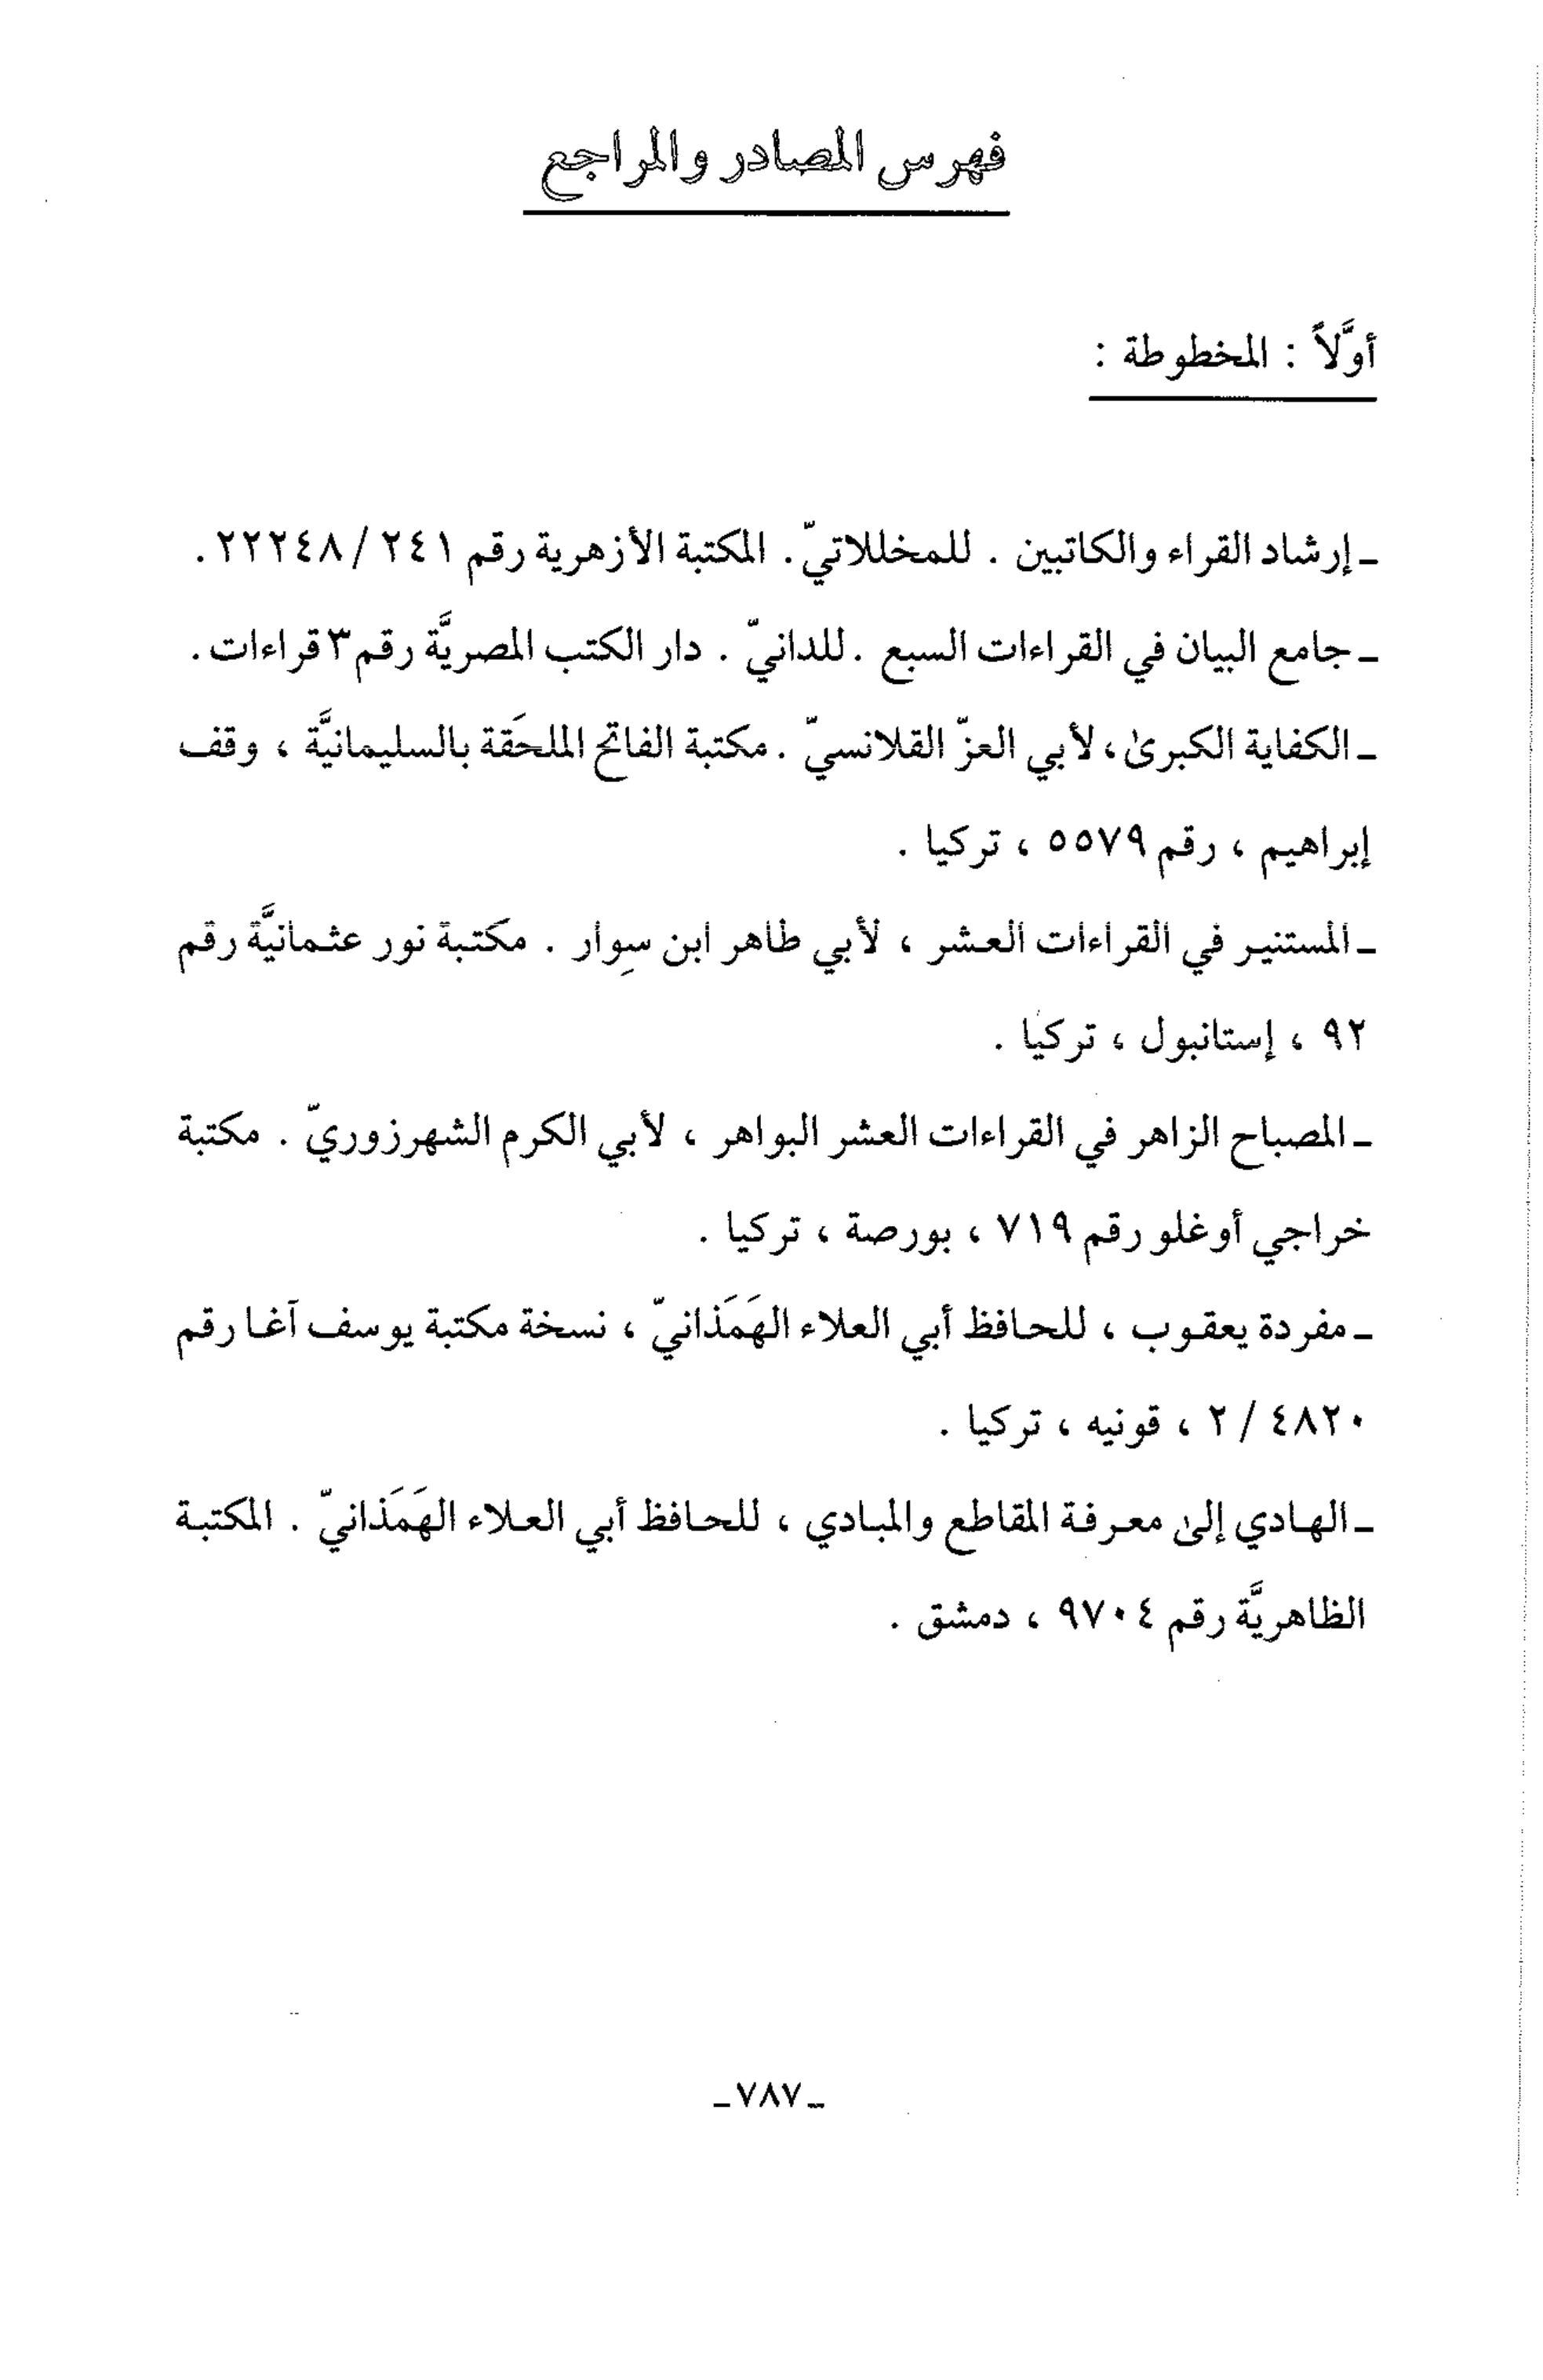 فهرس المصادر والمراجع
أوَّلاً : المخطوطة :
ـ إرشاد القراء والكاتبين . للمخللاتيّ. المكتبة الأزهرية رقم ٢٤١ / ٢٢٢٤٨ .
ـ جامع البيان في القراءات السبع . للدانيّ . دار الكتب المصريَّة رقم ٣ قراءات .
ـ الكفاية الكبرىٰ، لأبي العزّ القلانسيّ . مكتبة الفاتح الملحَقة بالسليمانيَّة ، وقف
إبراهيم ، رقم ٥٥٧٩ ، تركيا .
ـ المستنير في القراءات العشر ، لأبي طاهر ابن سِوار . مكتبة نور عثمانيَّة رقم
٩٢ ، إستانبول ، تركيا .
ـ المصباح الزاهر في القراءات العشر البواهر ، لأبي الكرم الشهرزوريّ . مكتبة
خراجي أوغلو رقم ٧١٩ ، بورصة ، تركيا .
ـ مفردة يعقوب ، للحافظ أبي العلاء الهَمَذانيّ ، نسخة مكتبة يوسف آغا رقم
٤٨٢٠ / ٢ ، قونيه ، تركيا .
ـ الهادي إلىٰ معرفة المقاطع والمبادي ، للحافظ أبي العلاء الهَمَذانيّ . المكتبة
الظاهريَّة رقم ٩٧٠٤ ، دمشق .
ـ٧٨٧ـ